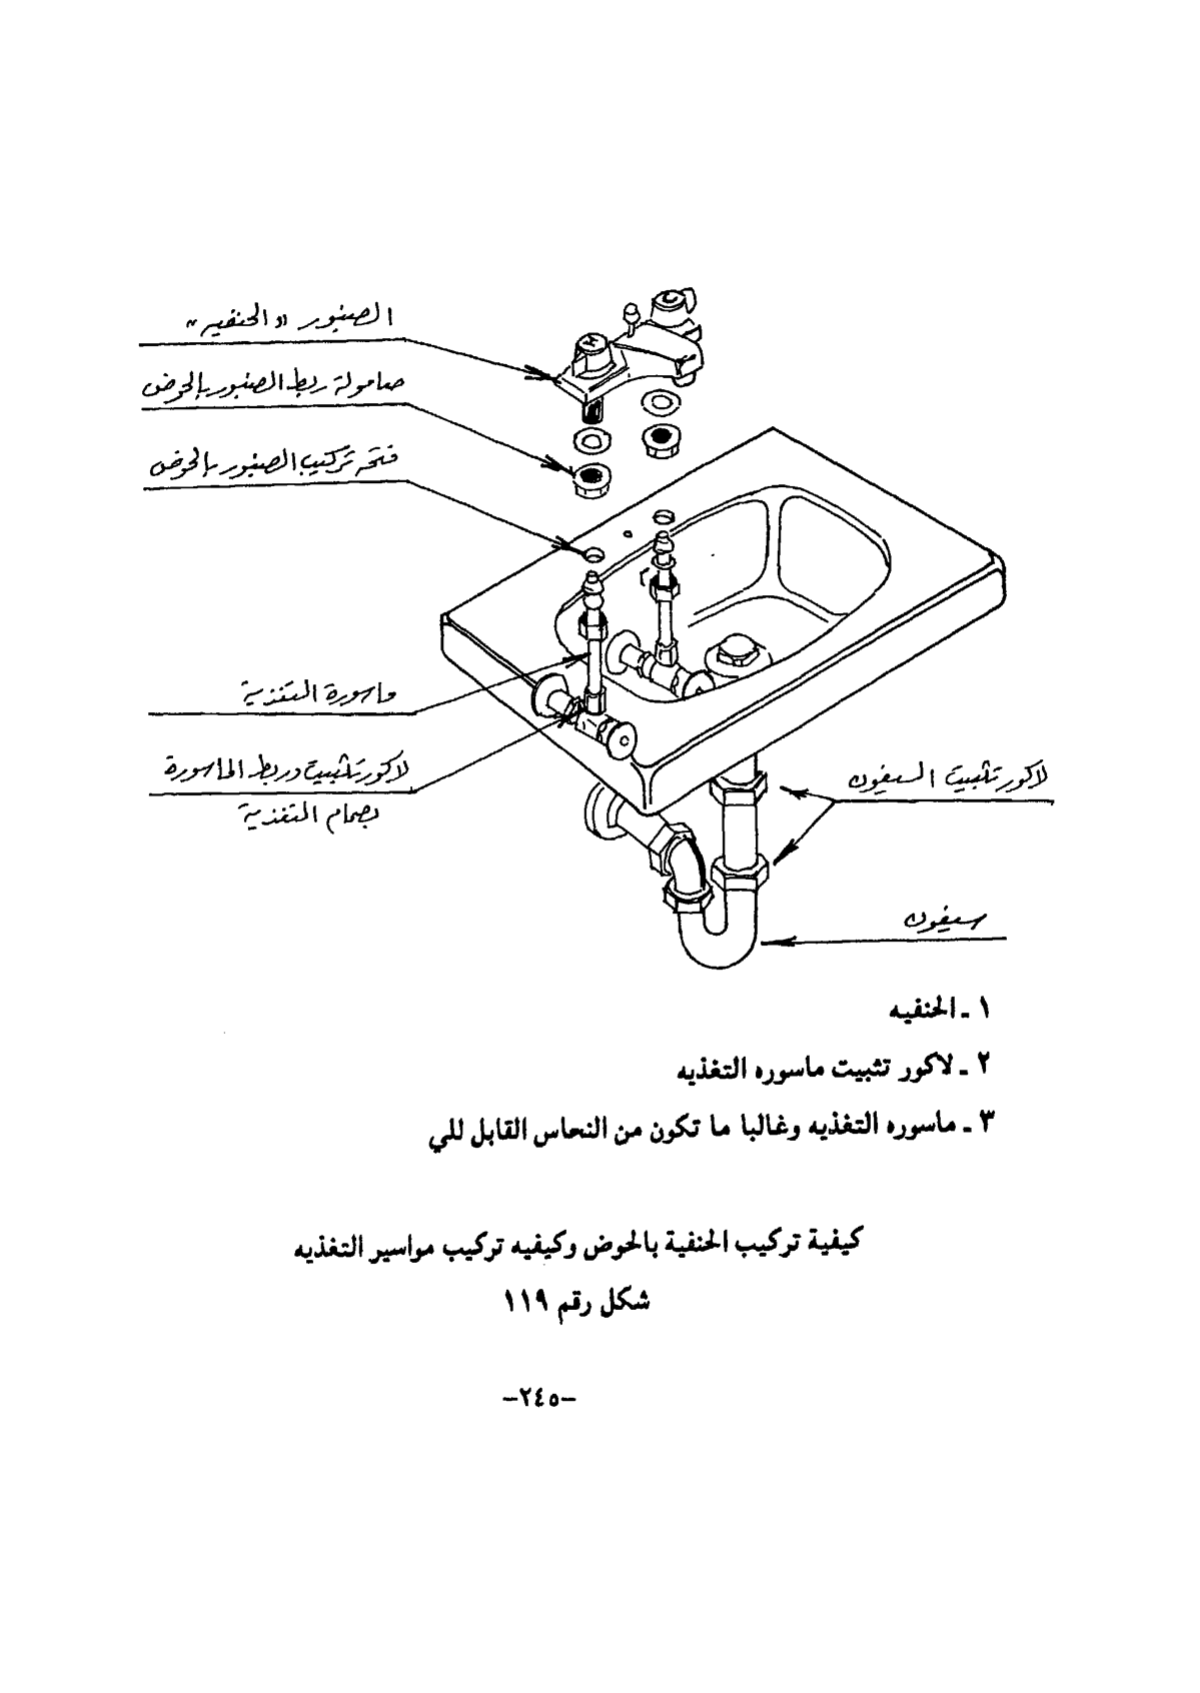 الصنبور "الحنفيه"
صامولة ربط الصنبور بالحوض
فتحه تركيب الصنبور بالحوض
ماسورة التغذية
لاكور تثبيت وربط الماسورة
بصمام التغذية
لاكور تثبيت السيفون
سيفون
H
C
١ ـ الحنفيه
٢ ـ لاكور تثبيت ماسوره التغذيه
٣ ـ ماسوره التغذيه وغالبا ما تكون من النحاس القابل للي
كيفية تركيب الحنفية بالحوض وكيفيه تركيب مواسير التغذيه
شكل رقم ١١٩
–٢٤٥–